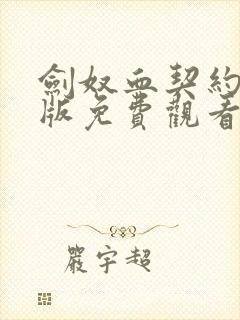 劍奴血契約
版免費觀看
嚴宇超